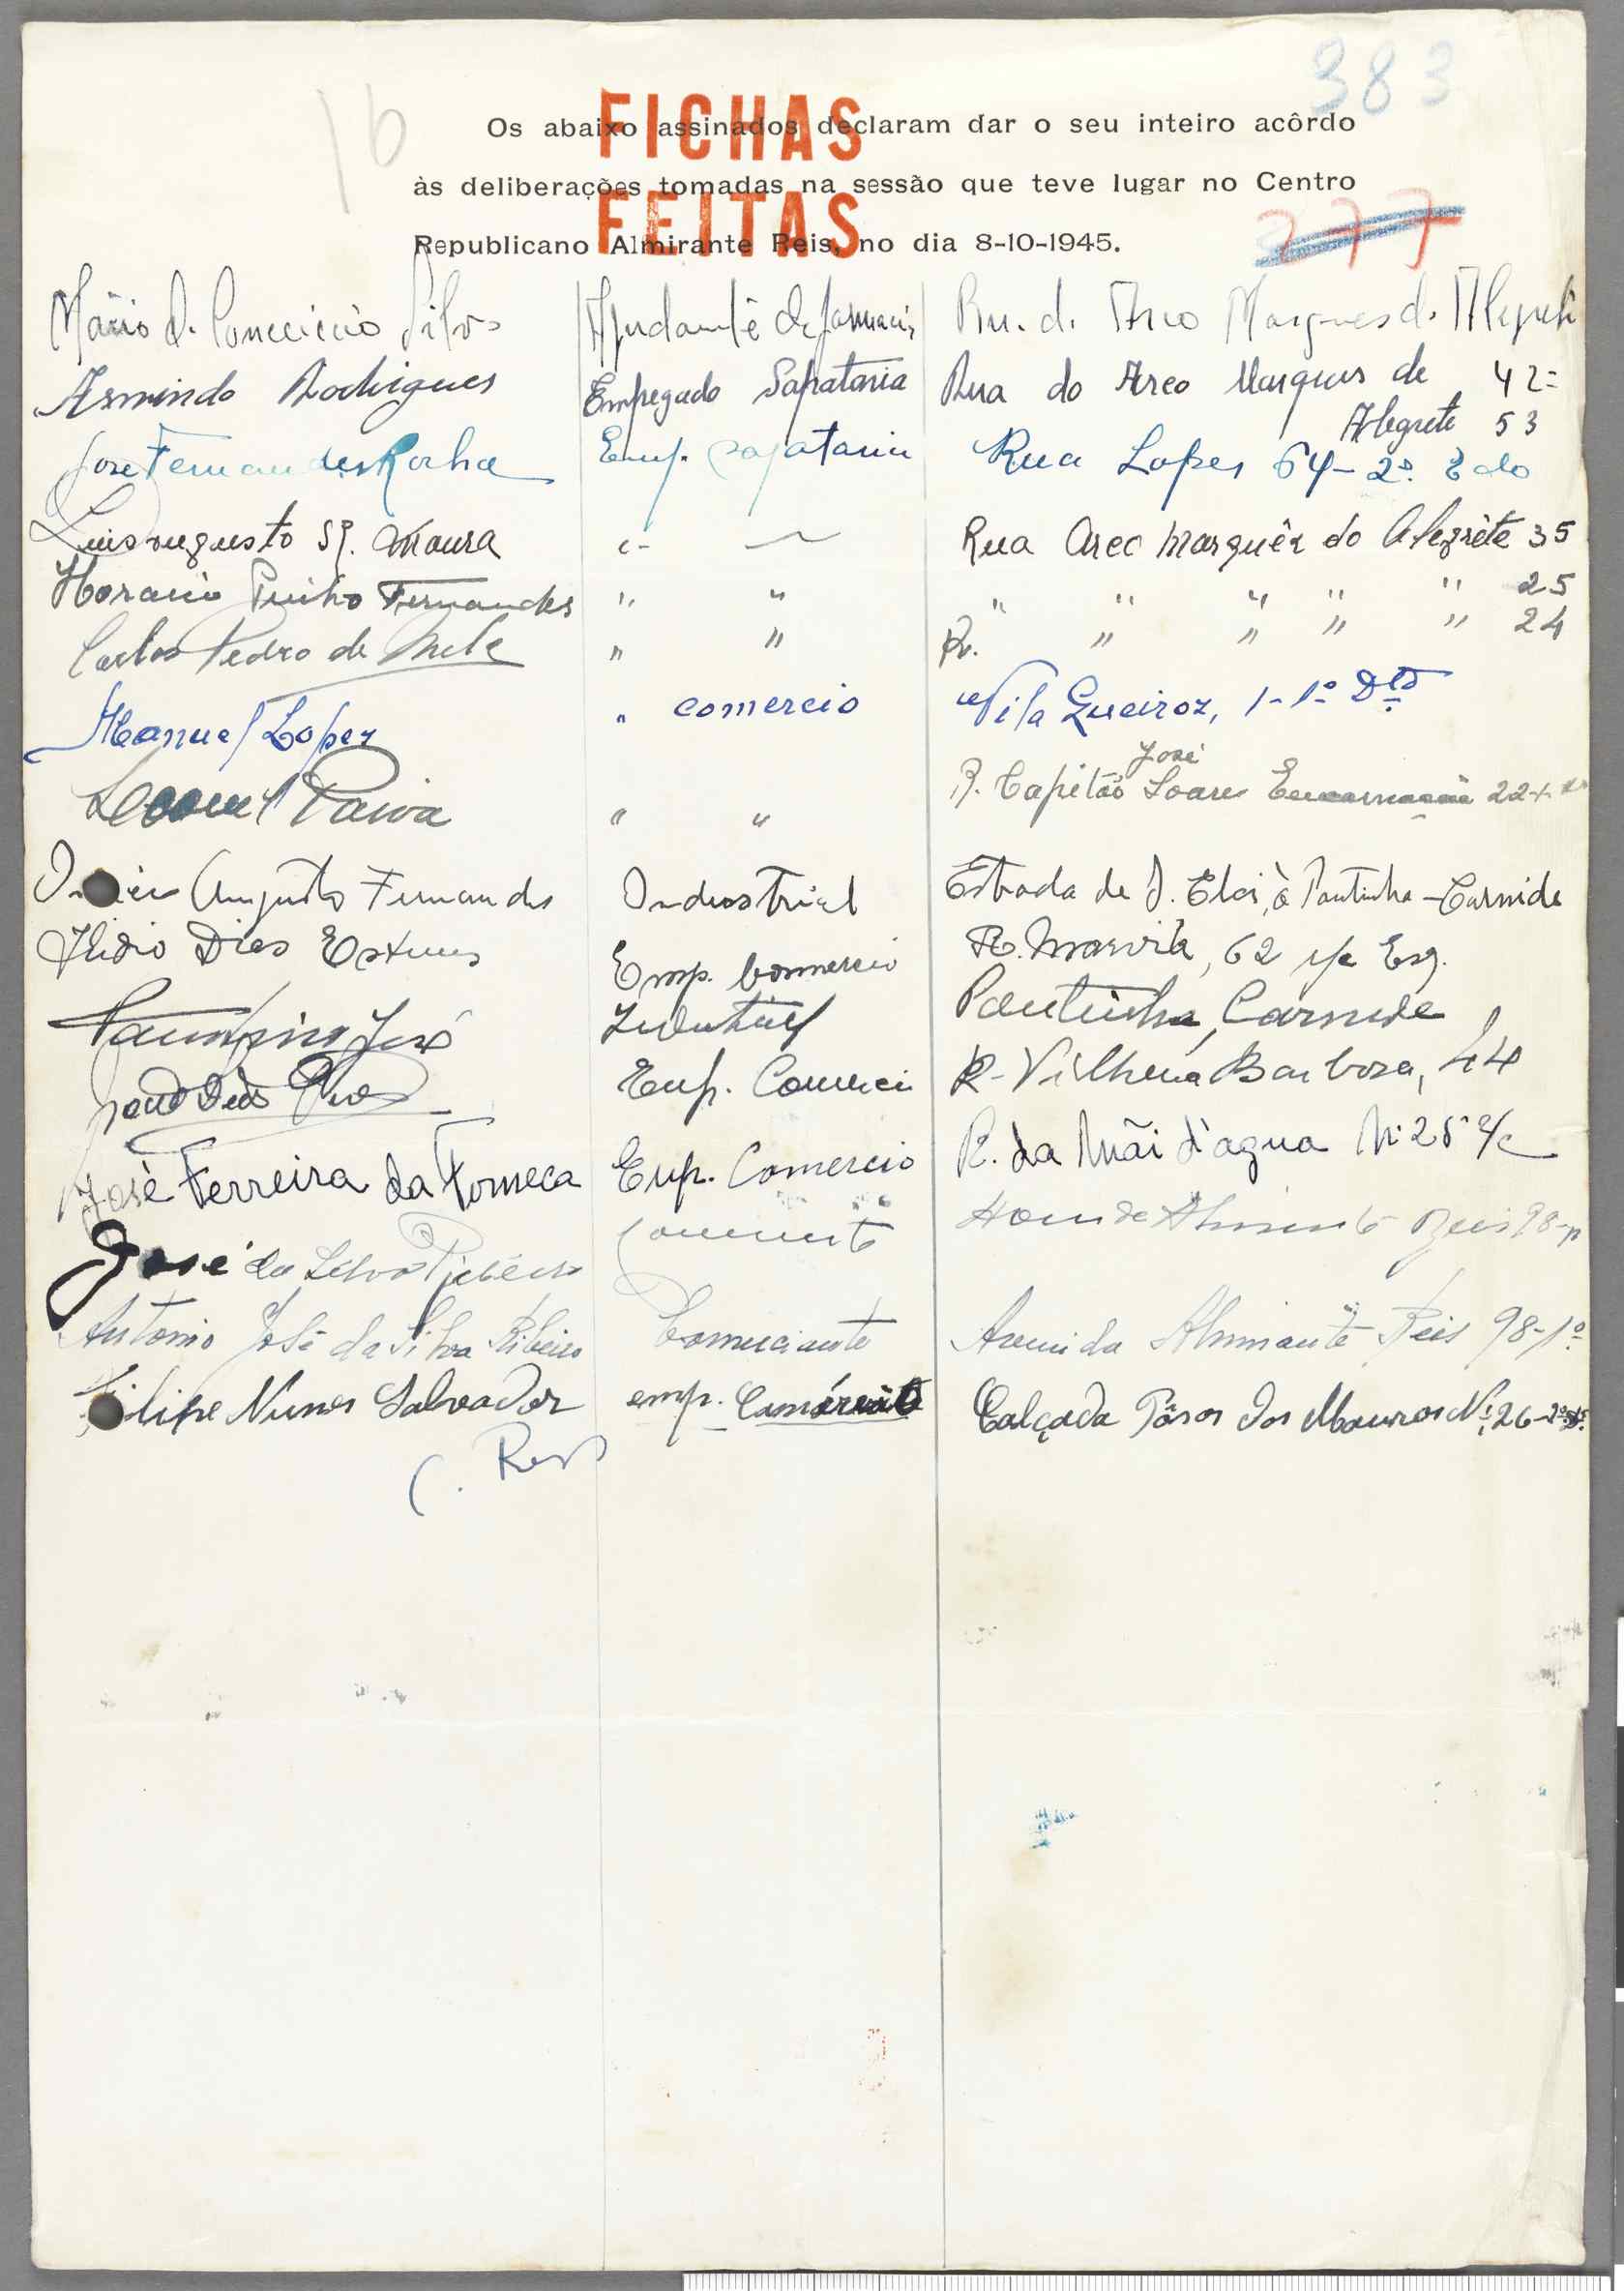 383
16
FICHAS
FEITAS
Os abaixo assinados declaram dar o seu inteiro acôrdo
às deliberações tomadas na sessão que teve lugar no Centro
Republicano Almirante Reis, no dia 8-10-1945.
777
Mário d. Conceicião Silva Ajudante de farmacia Rua d. Arco Marques d. Alegrete
42-
Armindo Rodrigues Empregado Sapataria Rua do Arco Marques de Alegrete 53
José Fernandes Rocha Emp. sapataria Rua Lopes 64-2º. E do
Luis Augusto Moura " Rua Arco Marquês do Alegrête 35
Horacio Pinho Fernandes " " " " " " " 25
Carlos Pedro de Melo " " R. " " " " 24
Manuel Lopes " comercio Vila Queiroz, 1-1º Dto
Leonel Paiva " " R. Capitão José Soares Encarnação
Augusto Fernandes Industrial Estrada de S. Eloi, à Pontinha - Carnide
Ilidio Dias Esteves Emp. Comercio R. Marvila, 62 r/c Esq.
José Industrial Pontinha, Carnide
Emp. Comercio R. Vilhena Barbosa,
José Ferreira da Fonseca Emp. Comercio R. da Mãi d'agua Nº 25 r/c
José da Silva Ribeiro Almirante Reis 98-
Antonio José da Silva Ribeiro Comerciante Avenida Almirante Reis 98-1º
Filipe Nunes Salvador emp. Comércio Calçada Póços dos Mouros Nº 26-2º